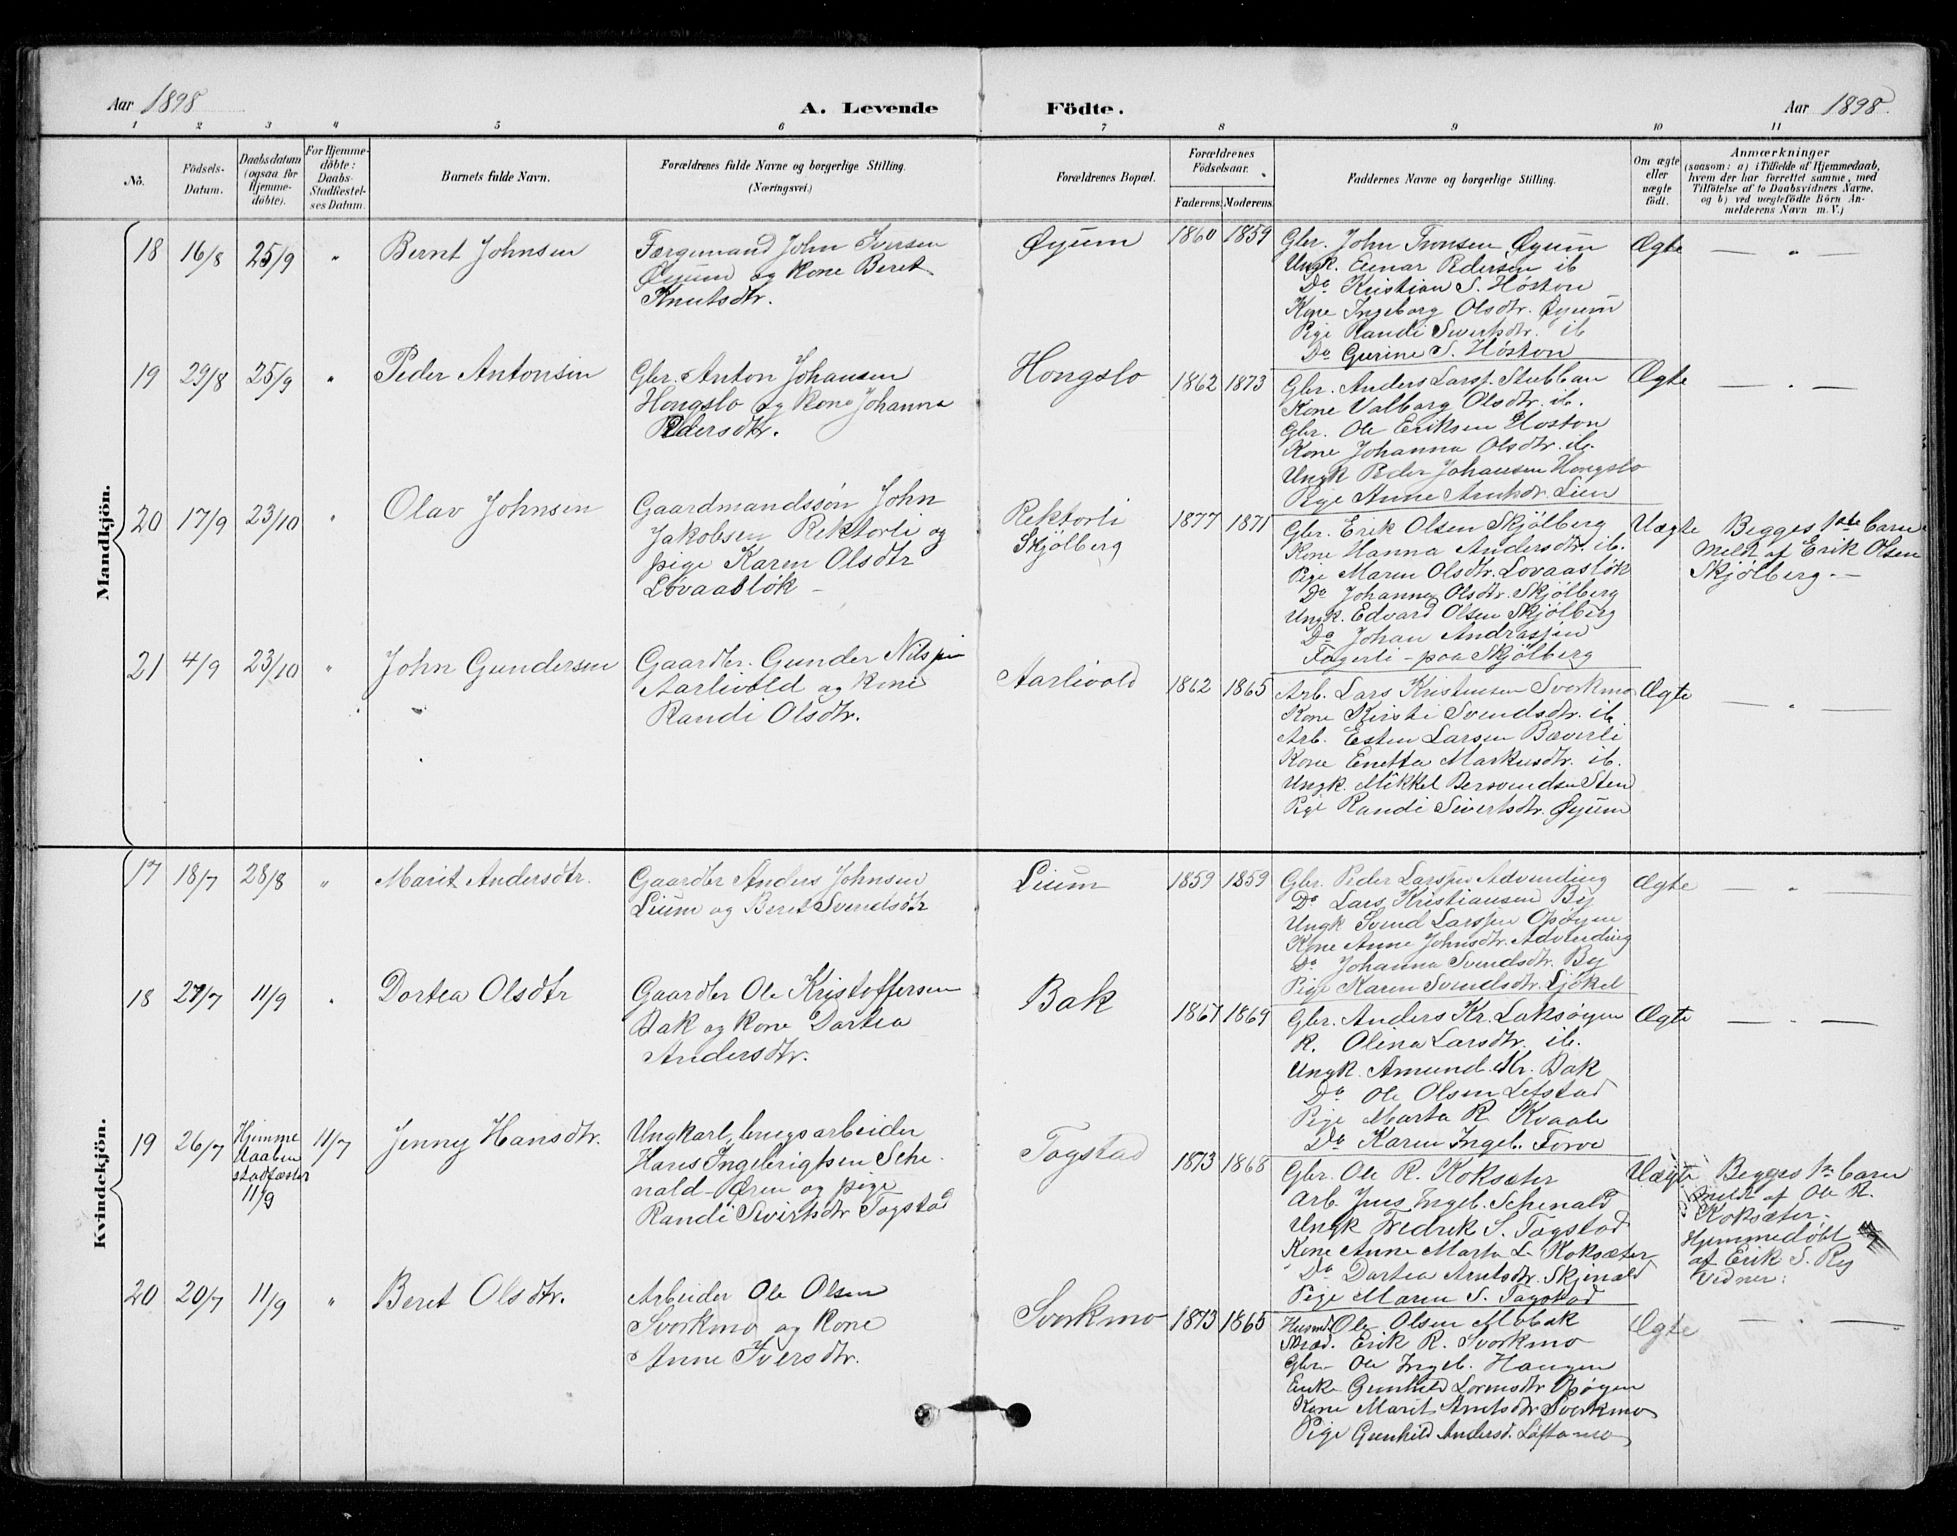 Aar 1898
A. Levende Födte.
Aar 1898.
1 2 3 4 5 6 7 8 9 10 11
No.
Födsels-
Datum.
Daabsdatum
(ogsaa for
Hjemme-
döbte).
For Hjemme-
döbte:
Daabs-
Stadfæstel-
ses Datum.
Barnets fulde Navn.
Forældrenes fulde Navne og borgerlige Stilling.
(Næringsvei.)
Forældrenes Bopæl.
Forældrenes
Födselsaar.
Faderens. Moderens.
Faddernes Navne og borgerlige Stilling.
Om ægte
eller
uægte
födt.
Anmærkninger
(saasom: a) i Tilfælde af Hjemmedaab,
hvem der har forrettet samme, med
Tilföielse af to Daabsvidners Navne,
og b) ved uægtefödte Börn An-
melderens Navn m. V.)
Mandkjön.
18 16/8 25/9 " Bernt Johnsen
Færgemand John Iversen
Øyum og kone Beret
Knutsdtr.
Øyum
1860 1859
Gbr. John Tronsen Øyum
Ungk. Einar Pedersen ib
Do Kristian S. Høston
Kone Ingeborg Olsdtr. Øyum
Pige Randi Sivertsdtr. ib
Do Gurine S. Høston
Ægte
— " —
19 29/8 25/9 " Peder Antonsen
Gbr. Anton Johansen
Hongslo og kone Johanna
Pedersdtr.
Hongslo
1862 1873
Gbr. Anders Larss. Stubban
Kone Valborg Olsdtr. ib.
Gbr. Ole Eriksen Høston
Kone Johanna Olsdtr. ib.
Ungk Peder Johansen Hongslo
Pige Anne Arntsdr. Lien
Ægte
— " —
20 17/9 23/10 " Olav Johnsen
Gaardmandssøn John
Jakobsen Rektorli og
pige Karen Olsdtr
Lovaasløk —
Rektorli
Skjølberg
1877 1871
Gbr. Erik Olsen Skjølberg
Kone Hanna Andersdtr. ib.
Pige Maren Olsdtr. Lovaasløk
Do Johanna Olsdtr. Skjølberg
Ungk. Edvard Olsen Skjølberg
Do Johan Andrassen
Fagerli - paa Skjølberg
Uægte
Begges 1ste barn
Meldt af Erik Olsen
Skjølberg. —
21 4/9 23/10 " John Gundersen
Gaardbr. Gunder Nilssen
Aarlivold og kone
Randi Olsdtr.
Aarlivold
1862 1865
Arb. Lars Kristensen Svorkmo
Kone Kirsti Svendsdtr. ib.
Arb. Esten Larsen Bæverli
Kone Enetta Markusdtr. ib.
Ungk. Mikkel Bersvendsen Sten
Pige Randi Sivertsdtr. Øyum
Ægte
— " —
Kvindekjön.
17 18/7 28/8 " Marit Andersdtr.
Gaardbr Anders Johnsen
Lium og Beret Svendsdtr
Lium
1859 1859
Gbr. Peder Larssen Solvending
Do Lars Kristiansen By
Ungk Svend Larssen Opøyen
Kone Anne Johnsdtr. Solvending
Do Johanna Svendsdtr. By
Pige Karen Svendsdtr. Ljøkel
Ægte
— " —
18 27/7 11/9 " Dortea Olsdtr
Gaardbr Ole Kristoffersen
Bak og kone Dortea
Andersdtr.
Bak
1867 1869
Gbr. Anders Kr. Laksøyen
K. Olina Larsdtr. ib.
Ungk. Amund Kr. Bak
Do Ole Olsen Lefstad
Pige Marta R. Kvaale
Do Karen Ingeb. Forve
Ægte
— " —
19 26/7
Hjemme
daaben
stadfæstet
11/9
11/7
Jenny Hansdtr.
Ungkarl, brugsarbeider
Hans Ingebrigtsen Skje-
nald-Øren og pige
Randi Sivertsdtr Togstad
Togstad
1873 1868
Gbr. Ole R. Koksæter
Arb. Jens Ingeb. Schenald
Ungk Fredrik S. Togstad
Kone Anne Marta L. Koksæter
Do Dortea Arntsdtr. Skjenald
Pige Maren S. Togstad
Uægte
Begges 1ste barn
Meldt af Ole R.
Koksæter.
Hjemmedøbt
af Erik S. Ry
Vidner:
20 20/7 11/9 " Beret Olsdtr.
Arbeider Ole Olsen
Svorkmo og kone
Anne Iversdtr.
Svorkmo
1873 1865
Husmd. Ole Olsen Mobak
Erik R. Svorkmo
Gbr. Ole Ingeb. Haugen
Enke Gunhild Lorntsdtr Opøyen
Kone Marit Arntsdtr Svorkmo
Pige Gunhild Andersd. Løftamo
Ægte
— " —